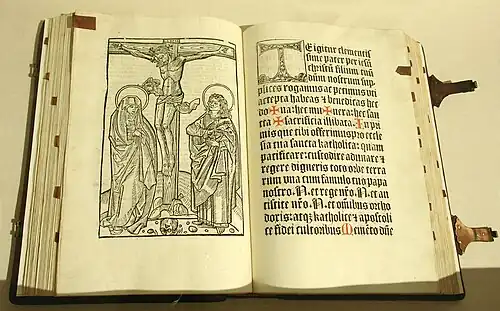 Te igitur clementis
sime pater per iesū
christū filium tuū
dn̄m nostrum sup
plices rogamus ac petimus vti
accepta habeas ⁊ benedicas hec
do✠na: hec mu✠nera: hec san
cta ✠ sacrificia illibata. In pri
mis que tibi offerimus pro eccle
sia tua sancta katholica: quam
pacificare: custodire adunare ⁊
regere digneris toto orbe terra
rum vna cum famulo tuo papa
nostro .N. et rege nr̄o .N. et an
tistite nr̄o .N. et om̄ibus ortho
doxis: atqꝫ katholice ⁊ apostoli
ce fidei cultoribus Memēto dn̄e